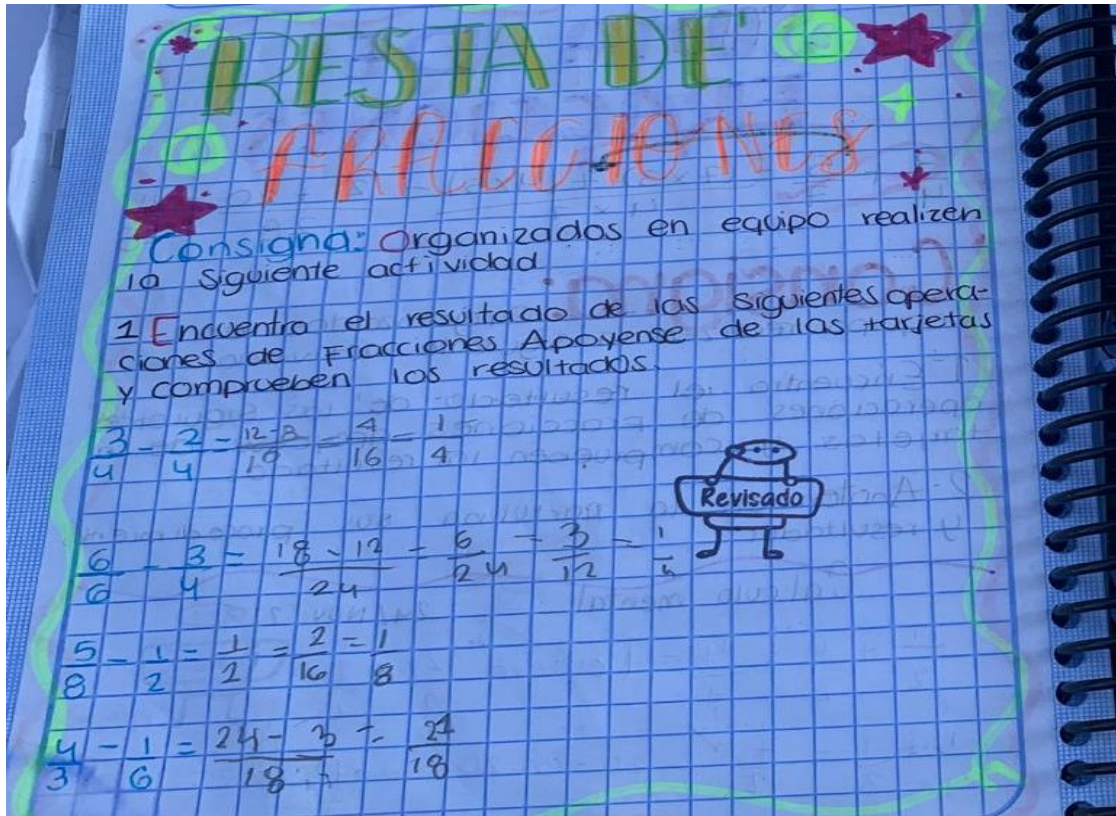 RESTA DE
FRACCIONES
Consigna: Organizados en equipo realizen
la siguiente actividad
1 Encuentra el resultado de las siguientes opera-
ciones de Fracciones Apoyense de las tarjetas
y comprueben los resultados.
3/4 - 2/4 = 12-8/16 = 4/16 = 1/4
Revisado
6/6 - 3/4 = 18-12/24 = 6/24 = 3/12 = 1/4
5/8 - 1/2 = 1/2 = 2/16 = 1/8
4/3 - 1/6 = 24-3/18 = 21/18